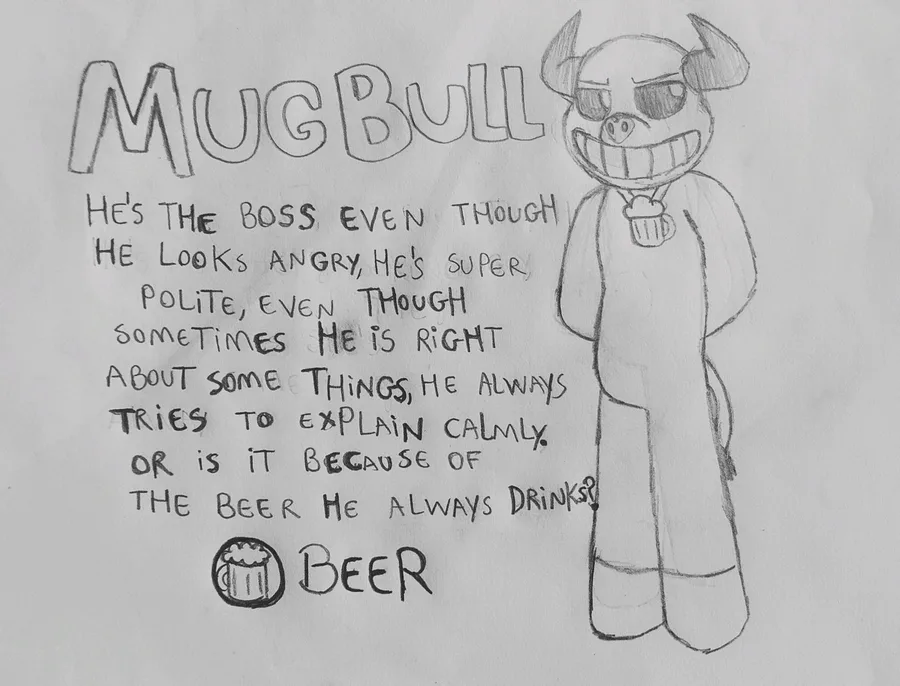 MUGBULL
HE'S THE BOSS EVEN THOUGH
HE LOOKS ANGRY, HE'S SUPER
POLiTE, EVEN THOUGH
SOMETiMES HE iS RiGHT
ABOUT SOME THiNGS, HE ALWAYS
TRiES TO EXPLAiN CALMLY.
OR iS iT BECAUSE OF
THE BEER HE ALWAYS DRiNKS?
BEER